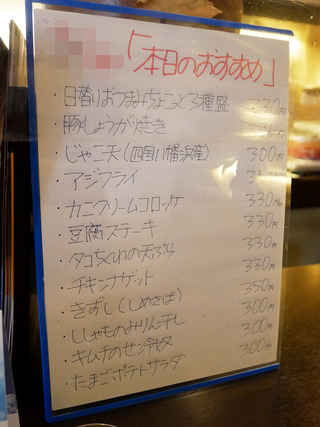 「本日のおすすめ」
・日替りおつまみちょこっと3種盛 330円
・豚しょうが焼き
・じゃこ天(四国八幡浜産) 300円
・アジフライ
・カニクリームコロッケ 330円
・豆腐ステーキ 330円
・タコちくわの天ぷら 330円
・チキンナゲット 330円
・きずし(しめさば) 350円
・ししゃものみりん干し 300円
・キムチのせ冷奴 300円
・たまごポテトサラダ 300円